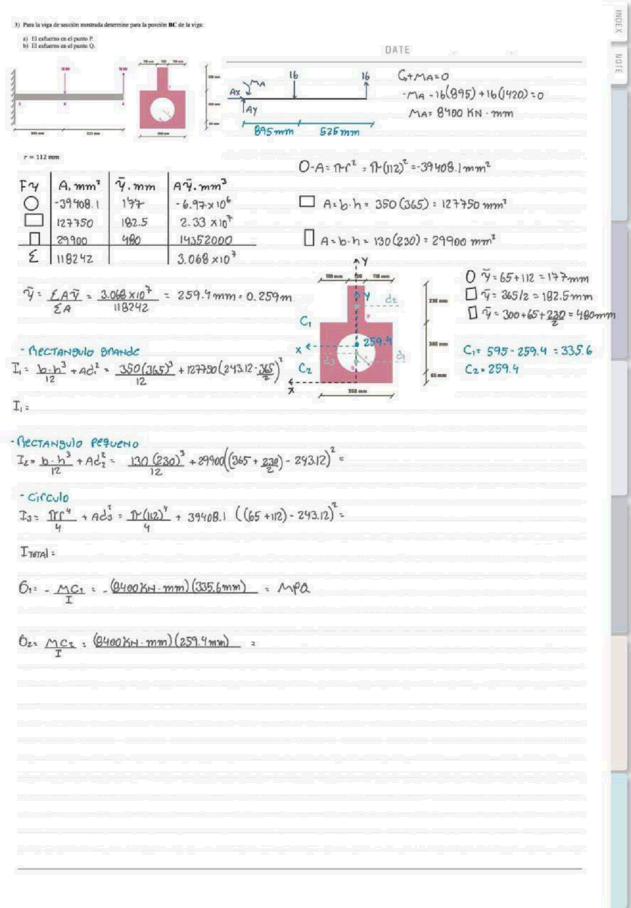 3) Para la viga de sección mostrada determine para la porción BC de la viga:
a) El esfuerzo en el punto P.
b) El esfuerzo en el punto Q.
INDEX
NOTE
DATE
MA
16
16
Ax
Ay
895mm
525mm
G+MA=0
-MA-16(895)+16(1420)=0
MA= 8400 KN·mm
r = 112 mm
Fy A, mm² ȳ, mm Aȳ, mm³
○ -39408.1 177 -6.97x10⁶
▭ 127750 182.5 2.33 x10⁷
▯ 29900 480 14352000
Σ 118242 3.068x10⁷
O-A= πr² = π(112)² =-39408.1mm²
▭ A=b·h= 350(365)= 127750 mm²
▯ A=b·h= 130(230)= 29900 mm²
ȳ= ΣAȳ/ΣA = 3.068x10⁷/118242 = 259.4mm=0.259m
Y
y
d2
C1
x
259.4
d3
d1
C2
x
O ȳ=65+112=177mm
▭ ȳ=365/2=182.5mm
▯ ȳ=300+65+230/2=480mm
C1= 595-259.4=335.6
C2=259.4
- Rectangulo grande
I1= b·h³/12 + Ad² = 350(365)³/12 +127750(243.12-365/2)²
I1=
- Rectangulo pequeno
I2= b·h³/12 + Ad₂² = 130(230)³/12 +29900((365+230/2)-243.12)² =
- Circulo
I3= πr⁴/4 + Ad₃² = π(112)⁴/4 + 39408.1 ((65+112)-243.12)² =
ITOTAL=
σ1= -MC1/I = -(8400KN·mm)(335.6mm) = MPa
σ2= MC2/I = (8400KN·mm)(259.4mm) =